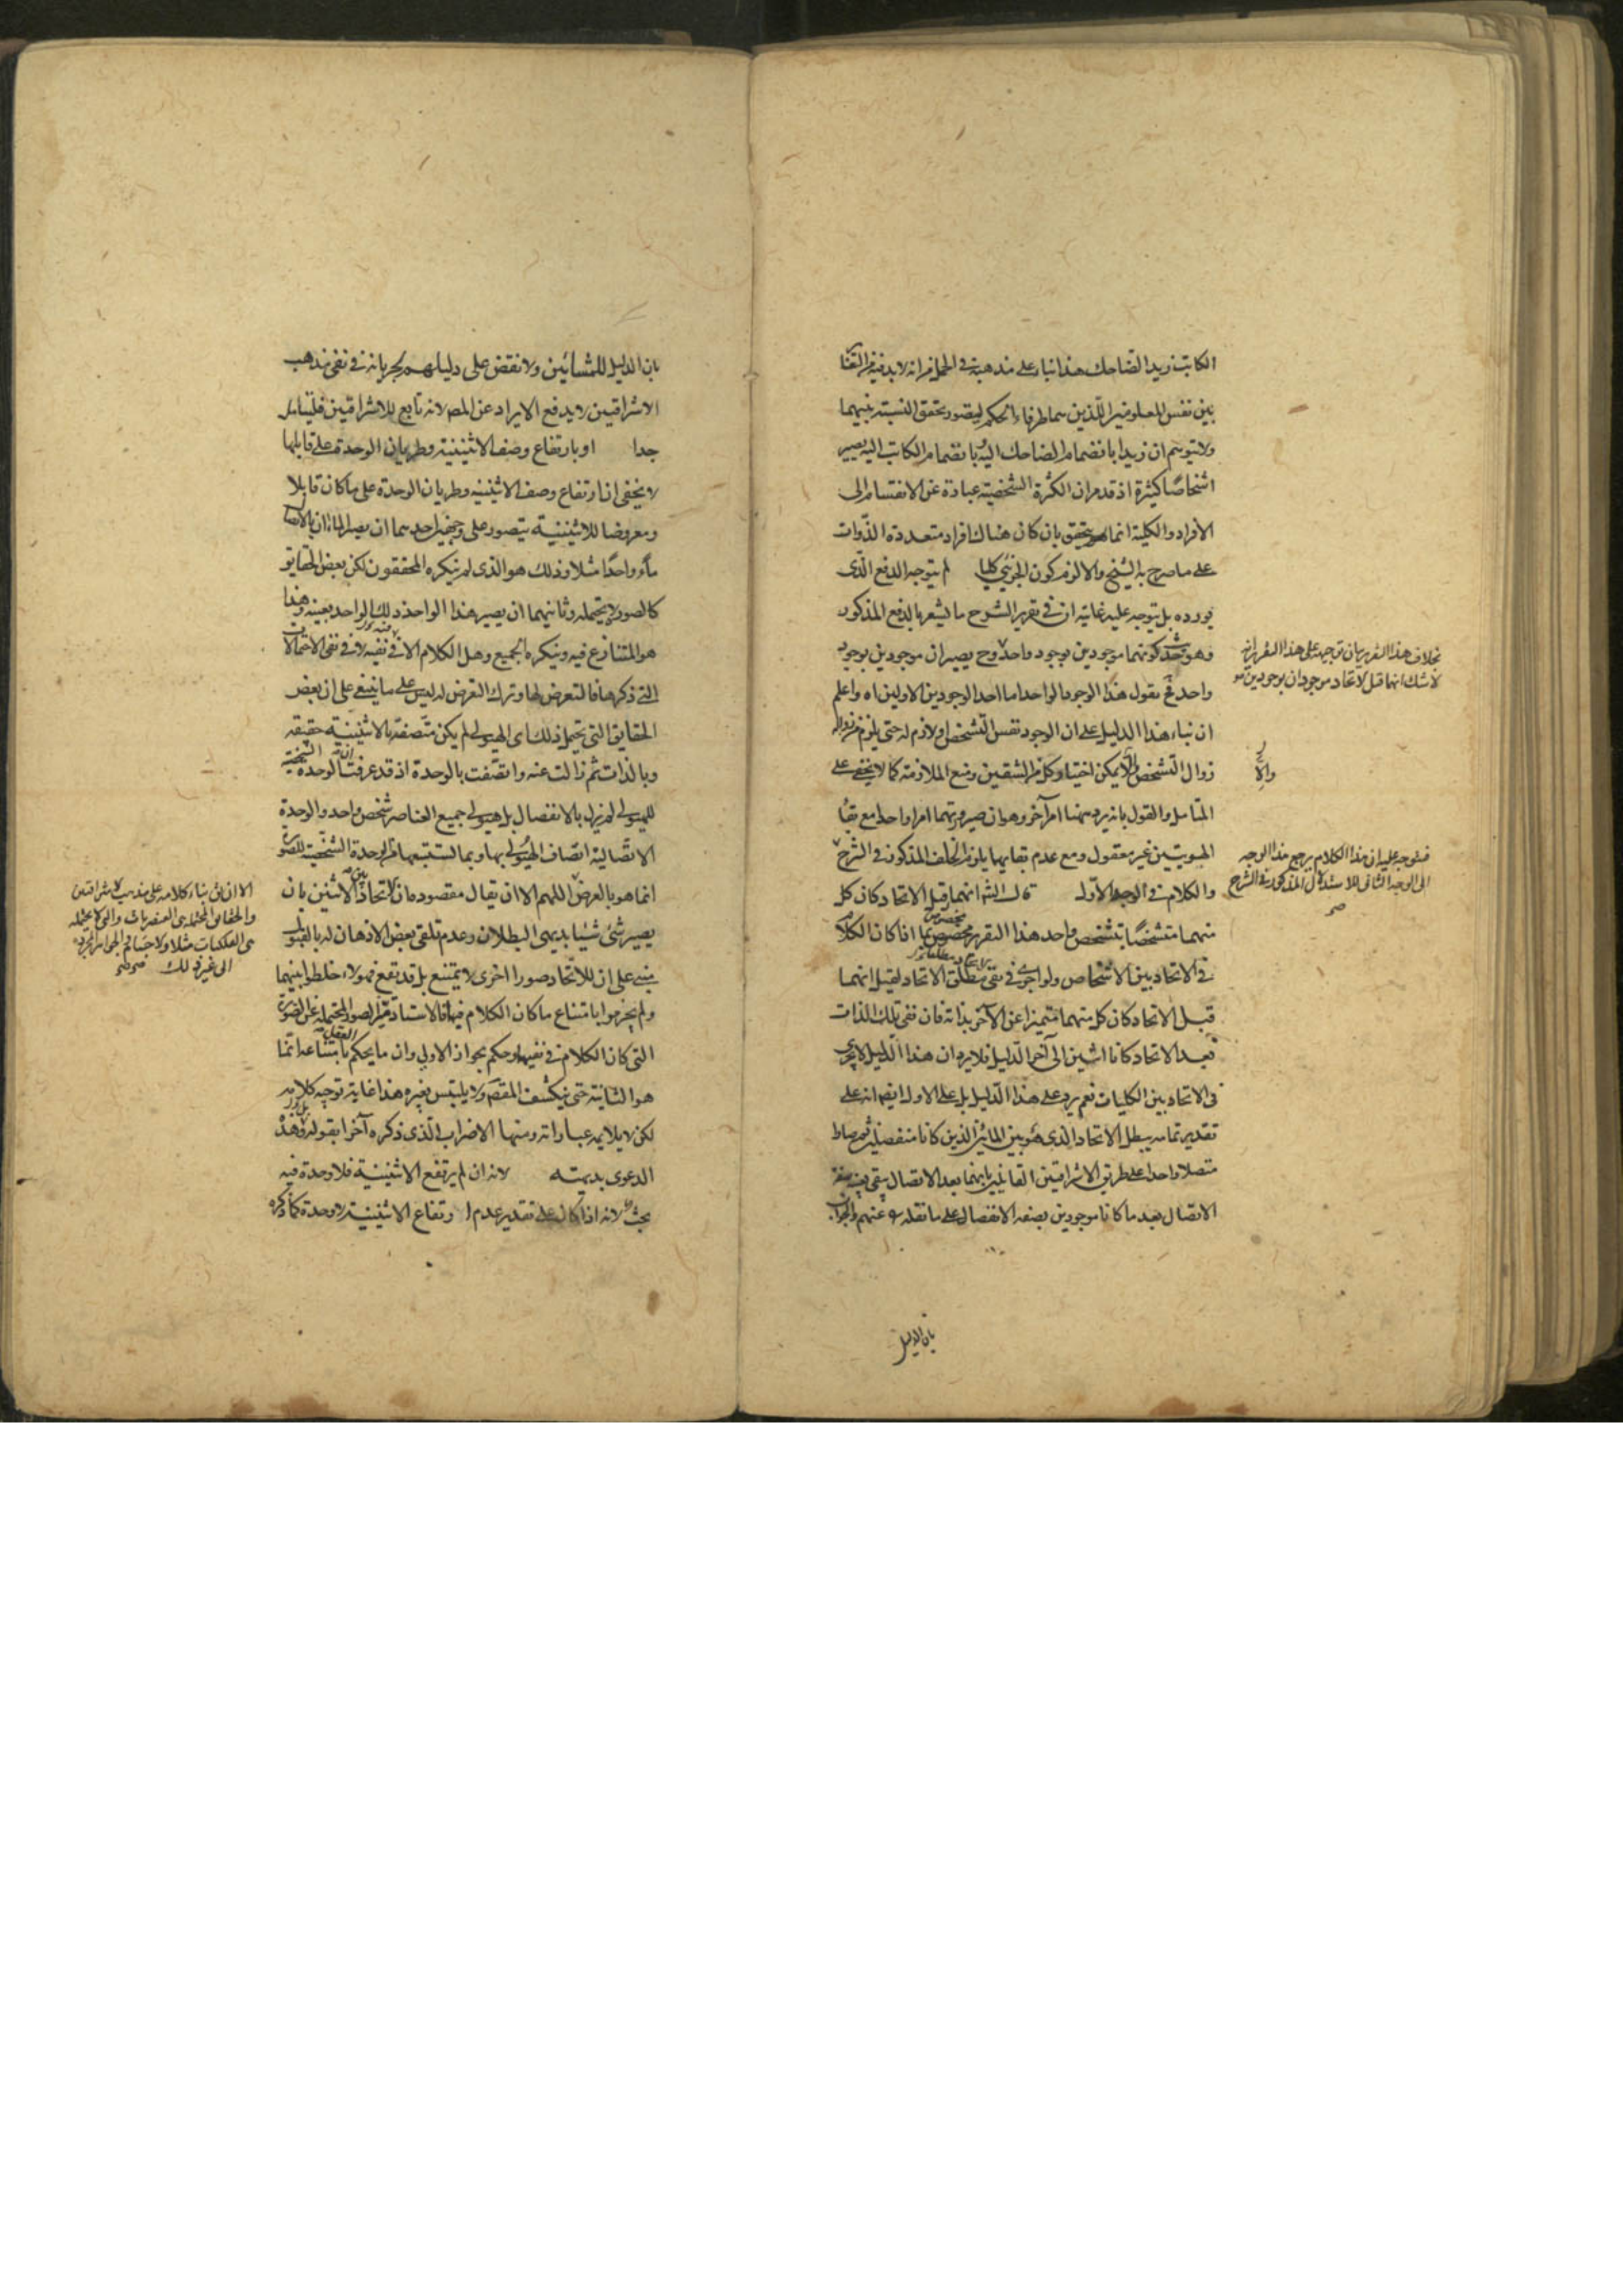 الكاتب زيدا الضاحك هذا بناء على مذهبه في الحمل من انه لابد فيه من التغاير
بين نفس المفهومين اللذين هما طرفاء الحكم ليتصور تحقق النسبة بينهما
ولا يتوهم ان زيدا بانضمام الضاحك اليه وبانضمام الكاتب اليه يصير
اشخاصا كثيرة اذ قد مر ان الكثرة الشخصية عبادة عن الانقسام الى
الأفراد والكلية انما يتحقق بان كان هناك افراد متعددة الذوات
على ما صرح به الشيخ والا لزم كون الجزئي كليا لم يتوجه الدفع الذي
يورده بل يتوجه عليه غايته ان في تقرير الشرح ما يشعر بالدفع المذكور
وهو كونهما موجودين بوجود واحد وح يصيران موجودين بوجود
واحد نقول هذا الوجود الواحد اما احد الوجودين الاولين اه واعلم
ان بناء هذا الدليل على ان الوجود نفس التشخص او لازم له حتى يلزم من زواله
زوال التشخص والا يمكن اختيار كل من الشقين ومنع الملازمة كما لا يخفى على
المتأمل والقول بانه يرد همنا امر آخر وهو ان صيرورتهما امرا واحدا مع بقاء
الهويتين غير معقول ومع عدم بقايهما يلزم الخلف المذكور في الشرح
والكلام في الوجه الاول قال الشم انهما قبل الاتحاد كان كل
منهما متشخصا بتشخص واحد هذا التقرير مخصوص بما اذا كان الكلام
في الاتحاد بين الاشخاص ولو اجرى في نفي مطلق الاتحاد لقيل انهما
قبل الاتحاد كان كل منهما متميزا عن الآخر بذاته فان نفي تلك الذات
بعد الاتحاد كانا اثنين الى آخر الدليل فلا يرد ان هذا الدليل لا يجري
في الاتحاد بين الكليات نعم يرد على هذا الدليل بل على الاول ايضا انه على
تقدير تمامه يبطل الاتحاد الذي هو بين المائين الذين كانا منفصلين ثم صارا
متصلا واحدا على طريق الاشراقيين القائلين بانهما بعد الاتصال
الاتصال بعد ما كانا موجودين بصفة الانفصال على ما نقله عنهم والجواب
بان الدليل
بخلاف هذا التقرير فان توجيهه على هذا التقرير انه
لا شك انهما قبل الاتحاد موجودان بوجودين
والا
فيتوجه عليه ان هذا الكلام يرجع هذا الوجه
الى الوجه الثاني للاستدلال المذكور في الشرح
بان الدليل للمشائين ولا نقض على دليلهم بجريانه في نفى مذهب
الاشراقيين لا يدفع الايراد عن المصـ لانه تابع للاشراقيين فليتأمل
جدا او بارتفاع وصف الاثنينية وطريان الوحدة على قابلها
لا يخفى ان ارتفاع وصف الاثنينية وطريان الوحدة على ما كان قابلا
ومعروضا للاثنينية يتصور على وجهين احدهما ان يصير الماءان بالاتصال
ماء واحدا مثلا وذلك هو الذي لم ينكره المحققون لكن بعض الحقايق
كالصور لا يحتمله وثانيهما ان يصير هذا الواحد ذلك الواحد بعينه وهذا
هو المتنازع فيه وينكره الجميع وهل الكلام الا في نفيه لا في نفي الاحتمالات
التي ذكرها فالتعرض لها وترك التعرض له ليس على ما ينبغي على ان بعض
الحقايق التي يحتمل ذلك اى الهيولى لم يكن متصفة بالاثنينية حقيقة
وبالذات ثم زالت عنه واتصفت بالوحدة اذ قد عرفت ان الوحدة الشخصية
للهيولى لم يزل بالانفصال بل هيولى جميع العناصر شخص واحد والوحدة
الاتصالية اتصاف الهيولى بها وبما يستتبعها من الوحدة الشخصية للصورة
انما هو بالعرض اللهم الا ان يقال مقصوده ان الاتحاد بين الاثنين بان
يصير شئ شيئا بديهى البطلان وعدم تلقي بعض الاذهان له بالقبول
مبنى على ان للاتحاد صورا اخرى لا يمتنع بل قد تقع فهولاء خلطوا بينهما
ولم يجزموا بامتناع ما كان الكلام فيها فالاستاد ميز الصور المحتملة عن الصورة
التي كان الكلام في نفيها وحكم بجواز الاولى وان ما يحكم العقل بامتناعه انما
هو الثانية حتى ينكشف المقصـ ولا يلتبس بغيره هذا غاية توجيه كلامه
لكن لا يلايمه عباراته ومنها الاضراب الذي ذكره آخرا بقوله بل وهذه
الدعوى بديهته لانه ان لم يرتفع الاثنينية فلا وحدة فيه
بحث لانه اذا كان على تقدير عدم ارتفاع الاثنينية لا وحدة كما ذكره
الا ان بناء كلامه على مذهب الاشراقيين
والحقايق المحتملة هى العنصريات والتي لا يحتمله
هى الفلكيات مثلا والاجسام
الى غير ذلك